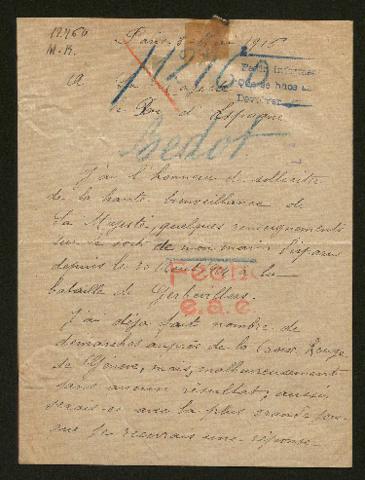 12460
M.R.
Paris 1916
11260
Pedir informes
Que se hace
Devolver
A Sa Majesté
le Roi d'Espagne
Bedot
J'ai l'honneur de solliciter
de la haute bienveillance de
Sa Majesté, quelques renseignements
sur le sort de mon mari disparu
depuis le à la
bataille de Gerbevillers.
Fecho
e.a.c
J'ai déja fait nombre de
démarches auprès de la Croix Rouge
de Genève, mais, malheureusement
sans aucun résultat; aussi
serais-ce avec la plus grande joie
que je recevrais une réponse